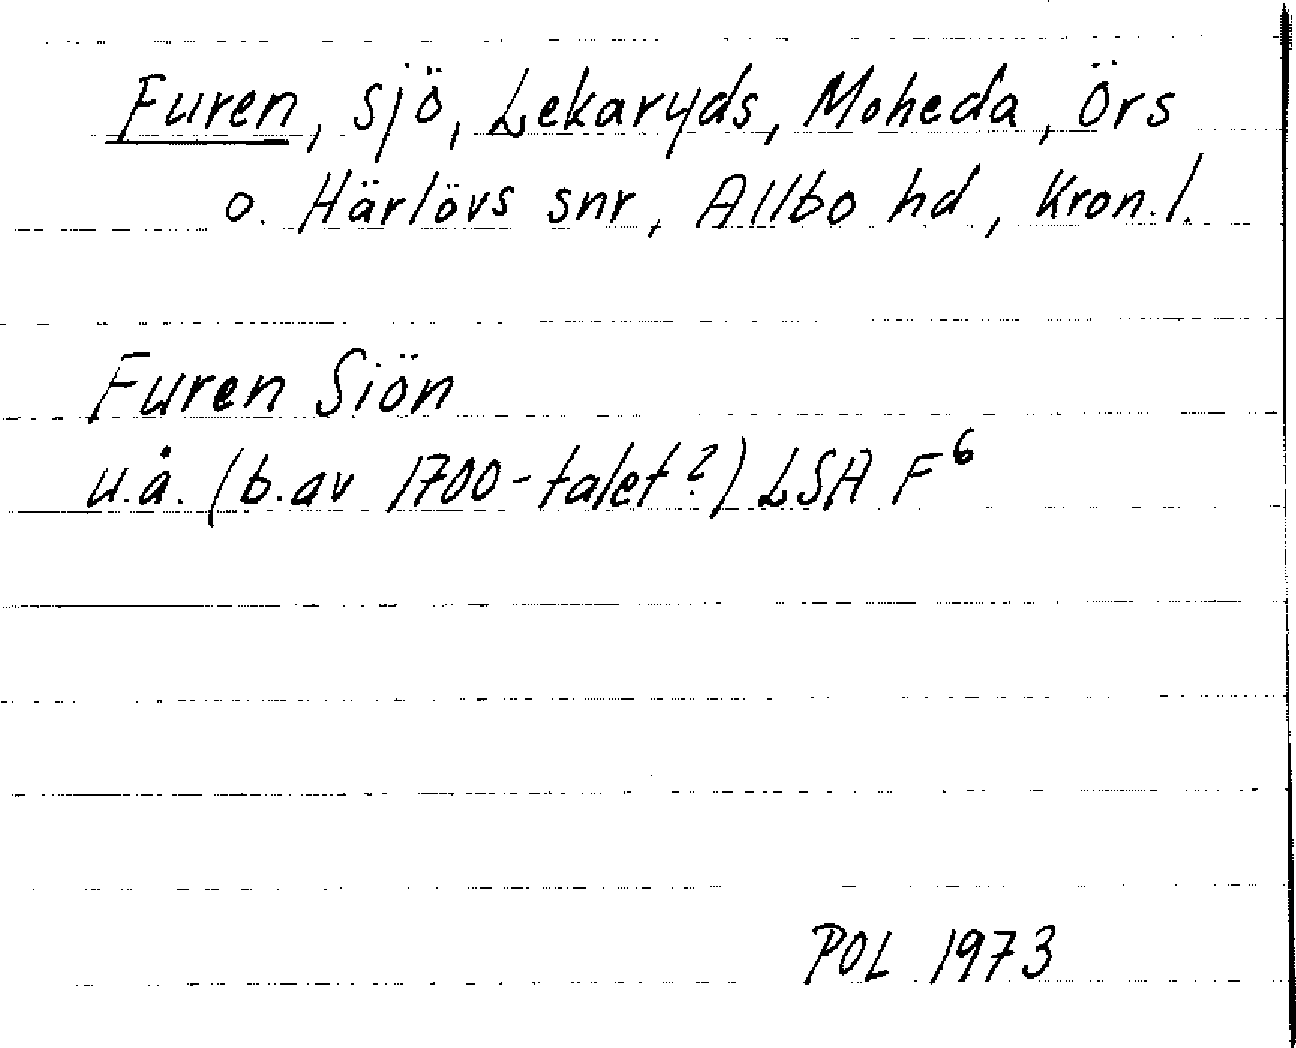 Furen, sjö, Lekaryds, Moheda, Örs
o. Härlövs snr, Allbo hd, Kron.l.
Furen Siön
u.å. (b.av 1700-talet?) LSA F⁶
POL 1973